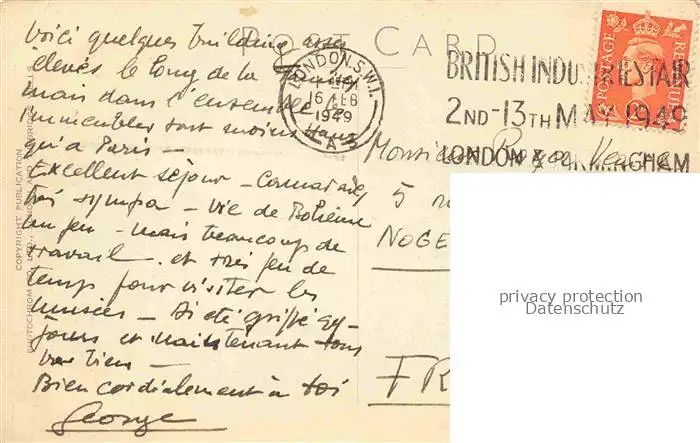 POST CARD
Voici quelques building assez
élevés le long de la
mais dans l'ensemble les
immeubles sont moins haut
qu'a Paris —
Excellent séjour — 
très sympa — vie de Bohème
un peu — mais beaucoup de
travail et très peu de
temps pour visiter les
musées — Ai été grippé qq
jours et maintenant tout
va bien —
Bien cordialement à toi
George
LONDON.S.W.1.
16 FEB
1949
A 3
BRITISH INDUSTRIES FAIR
2ND-13TH MAY 1949
LONDON & BIRMINGHAM
POSTAGE
REVENUE
Monsieur Roger
5
NOGE
FR
privacy protection
Datenschutz
COPYRIGHT PUBLICATION